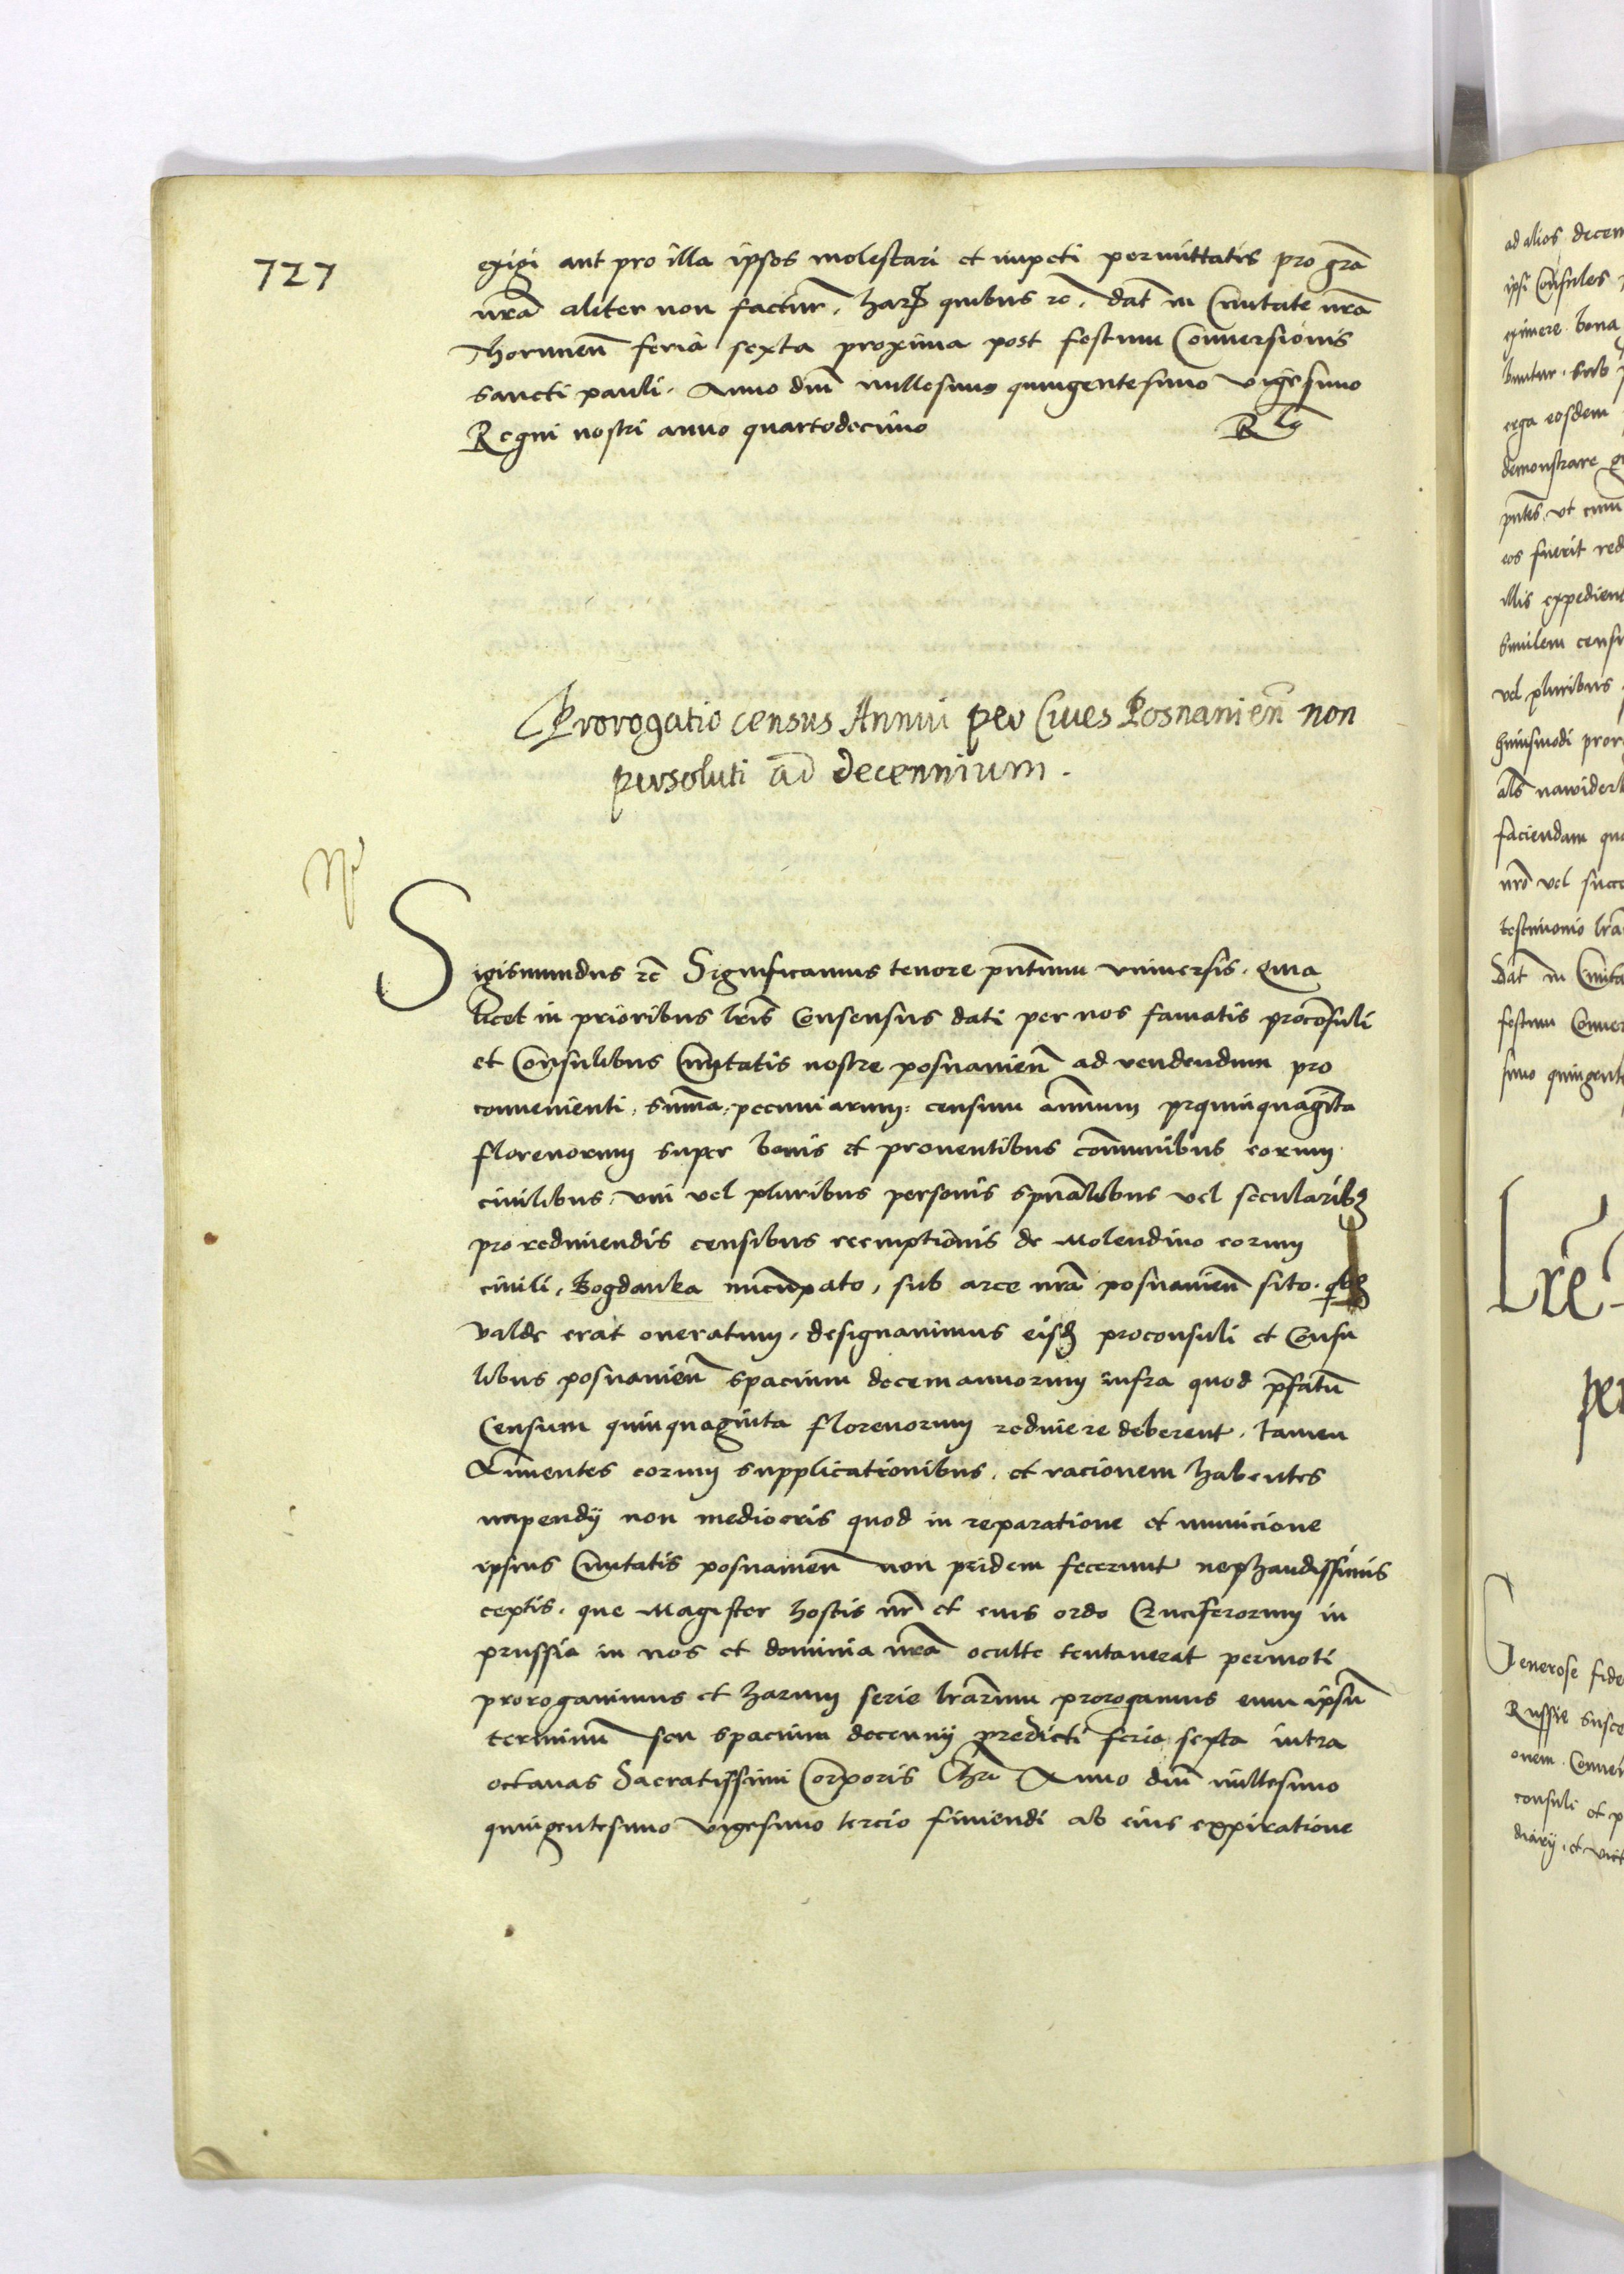 727
exigi aut pro illa ipsos molestari et impeti permittatis pro gra͂
nr͂a aliter non factur͂. harꝝ quibus rc̄. dat͂ in Ciuitate nr͂a
Thorunien͂ feria sexta proxima post festum Conuersionis
sancti pauli. Anno dn͂i millesimo quingentesimo vigesimo
Regni nostri anno quartodecimo
Prorogatio census Annui per Ciues Posnanien͂ non
persoluti ad decennium.
Sigismundus rc̄ Significamus tenore pn͂tium vniuersis. Quia
licet in prioribus lr͂is Consensus dati per nos famatis proconsuli
et Consulibus Ciuitatis nostre posnanien͂ ad vendendum pro
conuenienti, sum͂a, pecuniarum, censum annuum quinquaginta
florenorum super bonis et prouentibus com͂unibus eorum
ciuilibus, vni vel pluribus personis spūalibus vel secularibꝫ
pro redimendis censibus reemptionis de Molendino eorum
ciuili, Bogdanka nuncupato, sub arce nr͂a posnanien͂ sito. qbꝫ
valde erat oneratum, designauimus eisdꝫ proconsuli et Consu
libus posnanien͂ spacium decem annorum infra quod p͂fatum͂
Censum quinquaginta florenorum redimere deberent, tamen
Annuentes eorum supplicationibus, et racionem habentes
impendij non mediocris quod in reparatione et municione
ipsius Ciuitatis posnanien͂ non pridem fecerunt nephandissimis
ceptis, que Magister hostis nr͂ et eius ordo Cruciferorum in
prussia in nos et dominia nr͂a oculte tentauerat permoti
prorogauimus et harum serie lr͂arum prorogamus eum ipsum͂
terminum͂ seu spacium decennij predicti feria sexta intra
octauas Sacratissimi Corporis Chr͂i Anno dn͂i millesimo
quingentesimo vigesimo tercio finiendi ab eius expiratione
ad alios decem
ipsi Consules
eximere bona
erga eosdem
demonstrare
pn͂tes, vt cum
eos fuerit red
illis expedien
similem censu
vel pluribus
huiusmodi pror
faciendam qu
nr͂o vel succ
testimonio lr͂a
Dat͂ in Ciuita
festum Conuer
simo quingent
Lr͂e
per
Generose fide
Russie susce
onem. Conuen
consuli et p
diarij, et vict